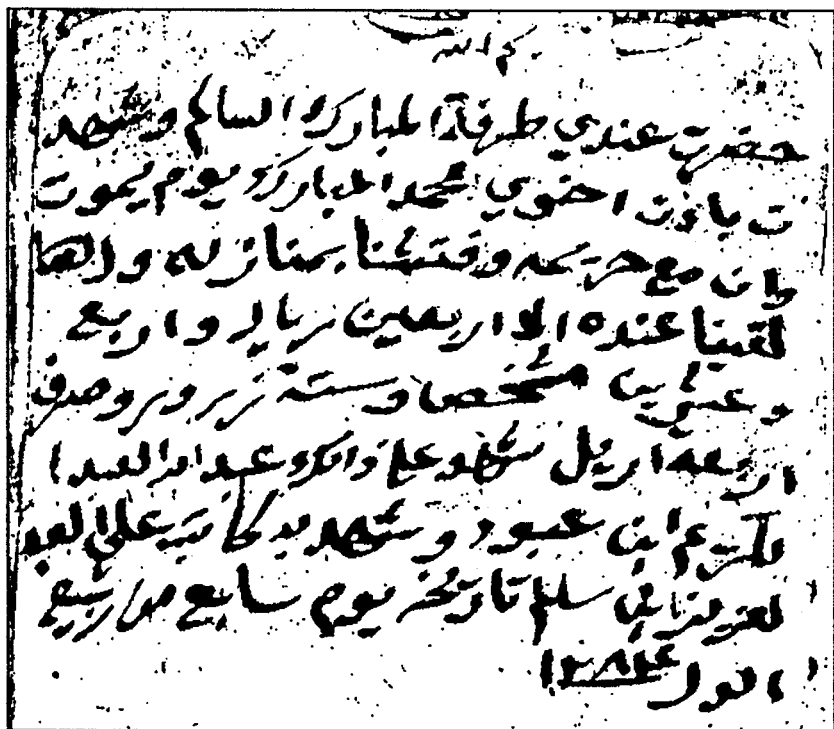 بسم الله
حضرت عندي طرفة المبارك السالم وشهد
ت بأن اخوي محمد المبارك يوم يموت
وان مع حريمه وفتشنا بمنازله والها
لقينا عنده الا اربعين ريال واربع
وعشرين مشخص وستة نيره وصرف
اربعة اريل شهد على ذالك عبد الله العبد ا
لكريم ابن عبود وشهد به كاتبه علي العبد ا
لعزيز ابن سليم تاريخه يوم سابع من ربيع
الاول